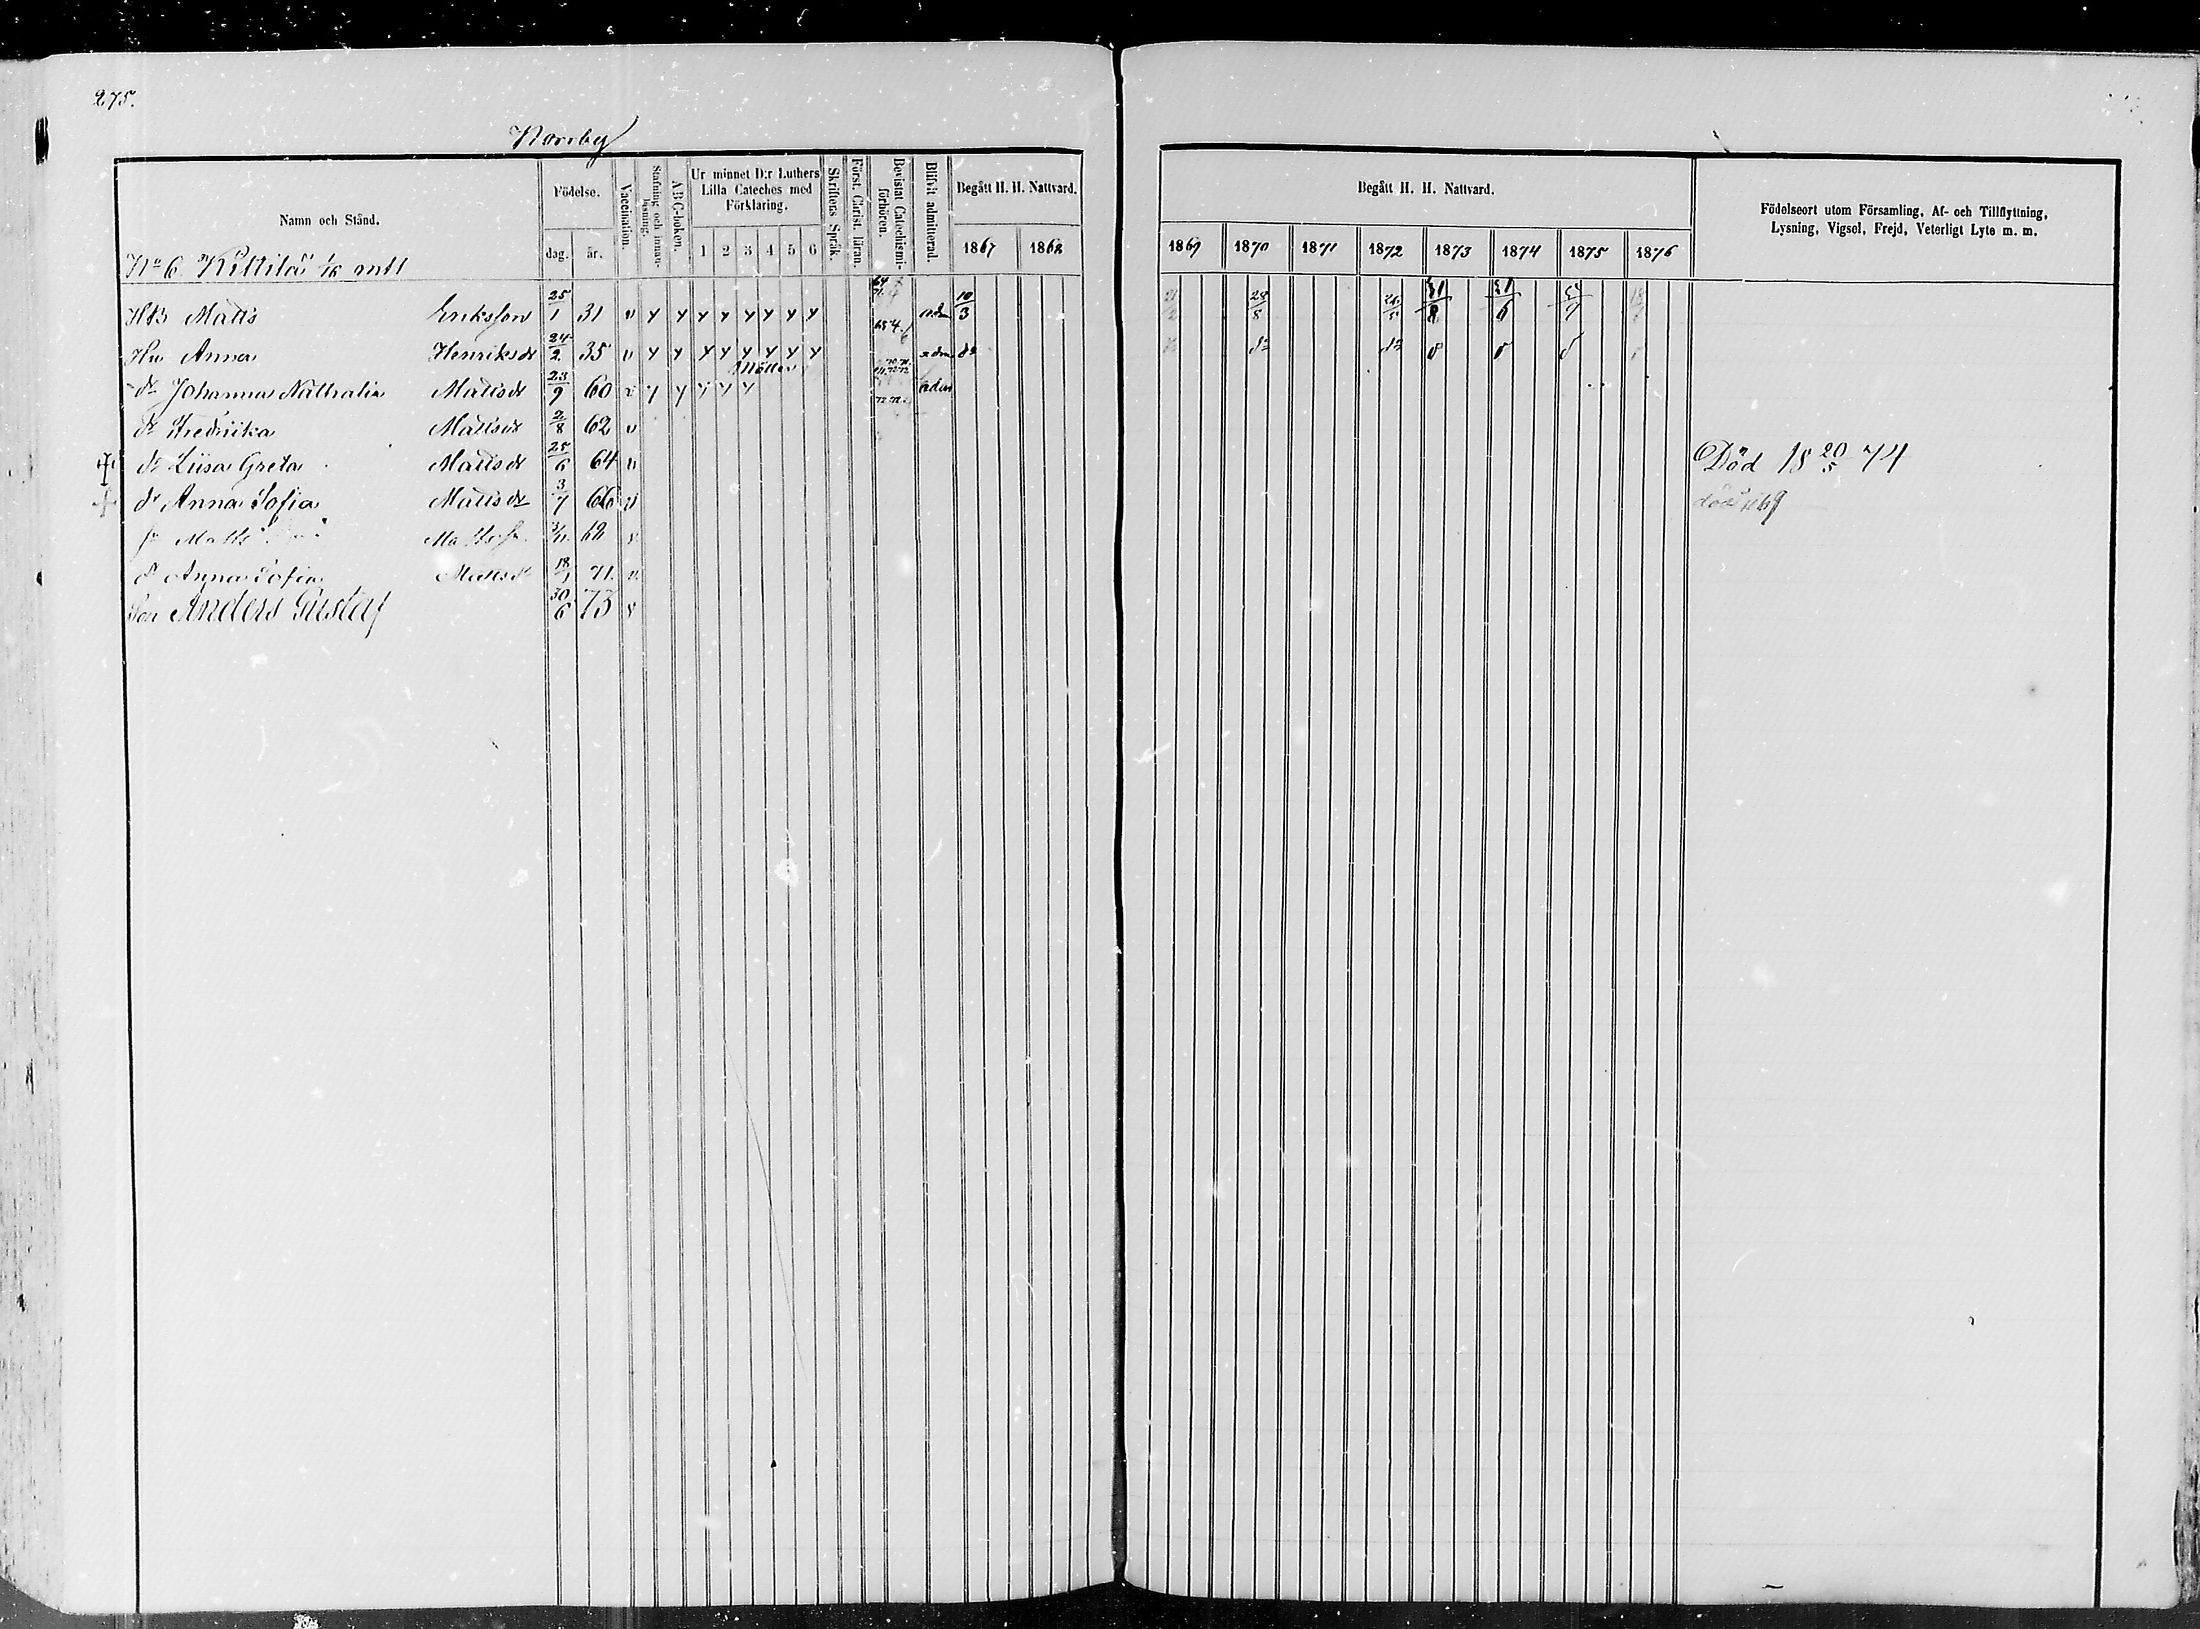 275.
Norrby
Namn och Stånd. Födelse. Vaccination. Stafning och innanläsning. ABC-boken. Ur minnet D:r Luthers Lilla Cateches med Förklaring. Skriftens Språk. Först. Christ. läran. Bevistat Catechismiförhören. Blifvit admitterad. Begått H. H. Nattvard.
dag. år. 1 2 3 4 5 6 1867 1868
No 6 Kittilä 1/6 mtl
Matts Eriksson 25/1 31 v adm 10/3
Hu Anna Henriksdr 24/2 35 v adm do
dr Johanna Nathalia Mattsdr 23/9 60 v adm
dr Fredrika Mattsdr 2/8 62 v
dr Liisa Greta Mattsdr 25/6 64 v
dr Anna Sofia Mattsdr 3/7 66 v
Matts 68 v
dr Anna Sofia Mattsdr 18/1 71. v.
Son Anders Gustaf 30/6 73 v
Begått H. H. Nattvard. Födelseort utom Församling, Af- och Tillflyttning, Lysning, Vigsel, Frejd, Veterligt Lyte m. m.
1869 1870 1871 1872 1873 1874 1875 1876
28/8 26/5 31/8 31/6
do do
Död 18 20/5 74
död 1869